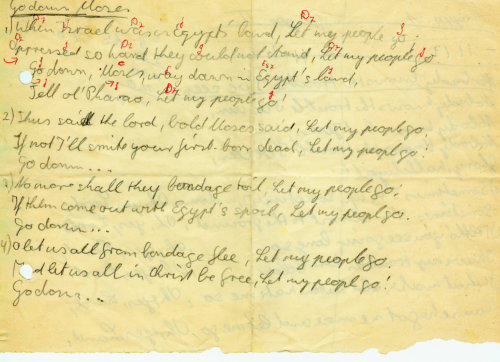 Go down Moses
1) When Israel was in Egypts' land, Let my people go.
Oppressed so hard they could not stand, Let my people go
Go down, Moses, way down in Egypt's land,
Tell ol' Pharao, Let my people go!
2) Thus said the lord, bold Moses said, Let my people go,
If not I'll smite your first-born dead, Let my people go!
Go down...
3) No more shall they bondage toil, Let my people go!
If them come out with Egypt's spoil, Let my people go.
Go down...
4) O let us all from bondage flee, Let my people go.
And let us all in Christ be free, Let my people go!
Go down...